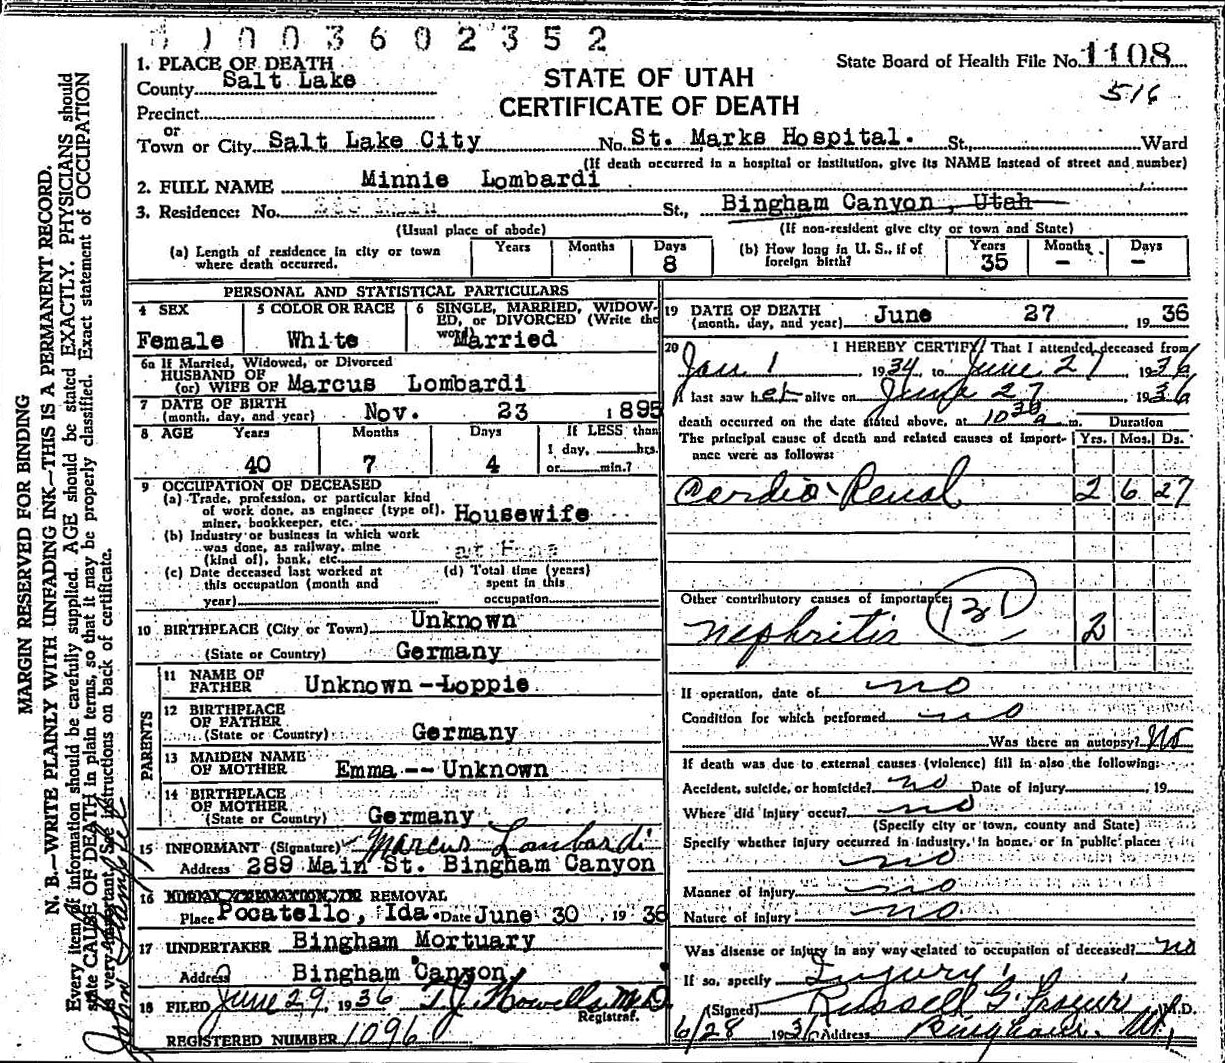 1003602352
1. PLACE OF DEATH
County Salt Lake
STATE OF UTAH
CERTIFICATE OF DEATH
State Board of Health File No. 1108
516
Precinct
or
Town or City Salt Lake City No. St. Marks Hospital. St., Ward
(If death occurred in a hospital or institution, give its NAME instead of street and number)
2. FULL NAME Minnie Lombardi
3. Residence: No. St., Bingham Canyon, Utah
(Usual place of abode) (If non-resident give city or town and State)
(a) Length of residence in city or town where death occurred. Years Months Days 8
(b) How long in U. S., if of foreign birth? Years 35 Months - Days -
PERSONAL AND STATISTICAL PARTICULARS
4 SEX Female
5 COLOR OR RACE White
6 SINGLE, MARRIED, WIDOWED, or DIVORCED (Write the word) Married
6a If Married, Widowed, or Divorced
HUSBAND OF
(or) WIFE OF Marcus Lombardi
7 DATE OF BIRTH
(month, day, and year) Nov. 23 1895
8 AGE Years 40 Months 7 Days 4 If LESS than 1 day, hrs. or min.?
9 OCCUPATION OF DECEASED
(a) Trade, profession, or particular kind
of work done, as engineer (type of),
miner, bookkeeper, etc. Housewife
(b) Industry or business in which work
was done, as railway, mine
(kind of), bank, etc. at
(c) Date deceased last worked at
this occupation (month and
year)
(d) Total time (years)
spent in this
occupation
10 BIRTHPLACE (City or Town) Unknown
(State or Country) Germany
PARENTS
11 NAME OF
FATHER Unknown --Loppie
12 BIRTHPLACE
OF FATHER
(State or Country) Germany
13 MAIDEN NAME
OF MOTHER Emma -- Unknown
14 BIRTHPLACE
OF MOTHER
(State or Country) Germany
15 INFORMANT (Signature) Marcus Lombardi
Address 289 Main St. Bingham Canyon
16 BURIAL, CREMATION, OR REMOVAL
Place Pocatello, Ida. Date June 30, 1936
17 UNDERTAKER Bingham Mortuary
Address Bingham Canyon,
18 FILED June 29, 1936 T. J. Howells M.D.
Registrar.
REGISTERED NUMBER 1096
19 DATE OF DEATH
(month, day, and year) June 27 1936
20 I HEREBY CERTIFY, That I attended deceased from
Jan 1 1934, to June 27 1936
I last saw her alive on June 27 1936
death occurred on the date stated above, at 10 30 a m.
The principal cause of death and related causes of importance were as follows:
Duration
Yrs. Mos. Ds.
Cardio-Renal 2 6 27
Other contributory causes of importance:
131
Nephritis 2
If operation, date of no
Condition for which performed no
Was there an autopsy? No
If death was due to external causes (violence) fill in also the following:
Accident, suicide, or homicide? no Date of Injury 19
Where did injury occur? no
(Specify city or town, county and State)
Specify whether injury occurred in industry, in home, or in public place:
no
Manner of Injury no
Nature of Injury no
Was disease or injury in any way related to occupation of deceased? no
If so, specify Injury
(Signed) Russell G. Frazier M.D.
6/28 1936 Address Bingham, Ut,
MARGIN RESERVED FOR BINDING
N. B.—WRITE PLAINLY WITH UNFADING INK—THIS IS A PERMANENT RECORD.
Every item of information should be carefully supplied. AGE should be stated EXACTLY. PHYSICIANS should
state CAUSE OF DEATH in plain terms, so that it may be properly classified. Exact statement of OCCUPATION
is very important. See instructions on back of certificate.